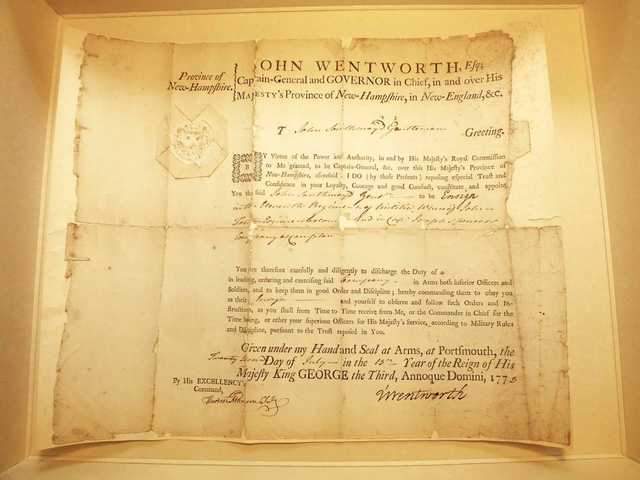 OHN WENTWORTH, Esq;
Captain-General and GOVERNOR in Chief, in and over His
MAJESTY's Province of New-Hampshire, in New-England, &c.
Province of
New-Hampshire.
T John Southmayd Gentleman Greeting.
BY Virtue of the Power and Authority, in and by His Majesty's Royal Commission
to Me granted, to be Captain-General, &c. over this His Majesty's Province of
New-Hampshire, aforesaid: I DO (by these Presents) reposing especial Trust and
Confidence in your Loyalty, Courage and good Conduct, constitute and appoint
You the said John Southmayd Gent to be Ensign
Eleventh Regiment of Militia
And in Capt Joseph
Company
You are therefore carefully and diligently to discharge the Duty of a
in leading, ordering and exercising said Company in Arms both inferior Officers and
Soldiers, and to keep them in good Order and Discipline; hereby commanding them to obey you
as their Ensign and yourself to observe and follow such Orders and In-
structions, as you shall from Time to Time receive from Me, or the Commander in Chief for the
Time being, or other your superiour Officers for His Majesty's Service, according to Military Rules
and Discipline, pursuant to the Trust reposed in You.
Given under my Hand and Seal at Arms, at Portsmouth, the
Day of July in the Year of the Reign of His
Majesty King GEORGE the Third, Annoque Domini, 177
By His EXCELLENCY's
Command,
JWentworth